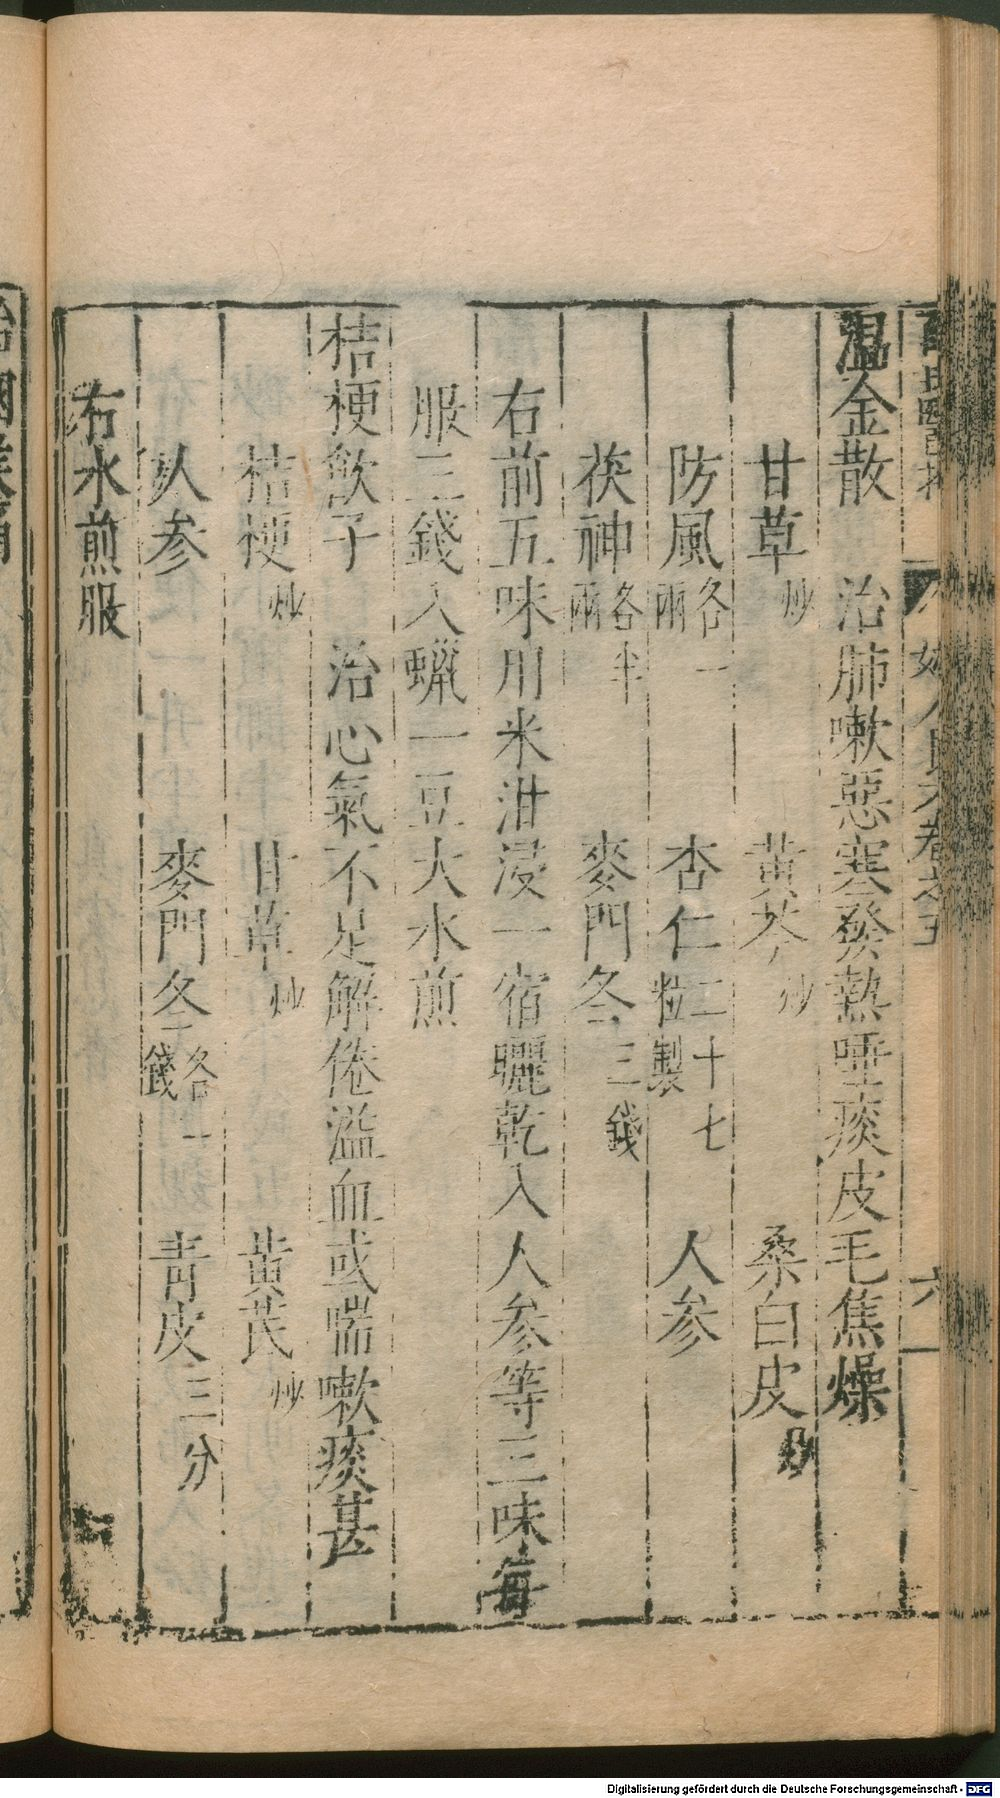 温金散　治肺嗽惡塞發熱唾痰皮毛焦燥
甘草炒　黃芩炒　桑白皮炒
防風各一兩　杏仁二十七粒製　人參
茯神各半兩　麥門冬三錢
右前五味用米泔浸一宿曬乾入人參等三味每
服三錢入蠟一豆大水煎
桔梗飲子　治心氣不足解倦溢血或喘嗽痰甚
桔梗炒　甘草炒　黃芪炒
人參　麥門冬各一錢　青皮三分
右水煎服
Digitalisierung gefördert durch die Deutsche Forschungsgemeinschaft - DFG